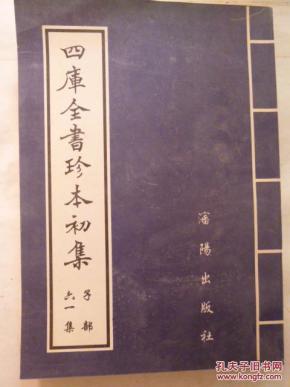 四庫全書珍本初集
子部
六一集
瀋陽出版社
孔夫子旧书网
www.kongfz.com